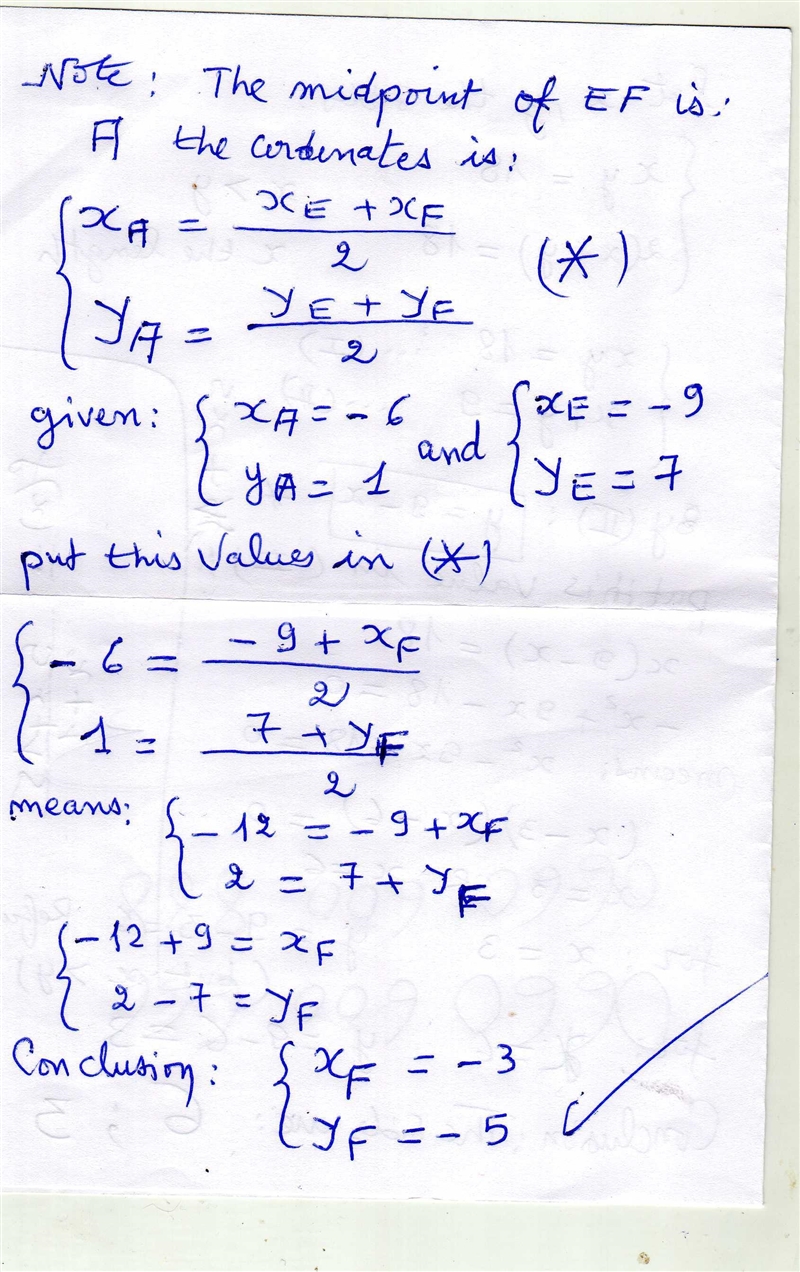 Note: The midpoint of EF is:
A the cordenates is:
{ x_A = (x_E + x_F)/2
(*)
y_A = (y_E + y_F)/2
given: { x_A = -6 and { x_E = -9
y_A = 1 y_E = 7
put this values in (*)
{ -6 = (-9 + x_F)/2
1 = (7 + y_F)/2
means: { -12 = -9 + x_F
2 = 7 + y_F
{ -12 + 9 = x_F
2 - 7 = y_F
Conclusion: { x_F = -3
y_F = -5